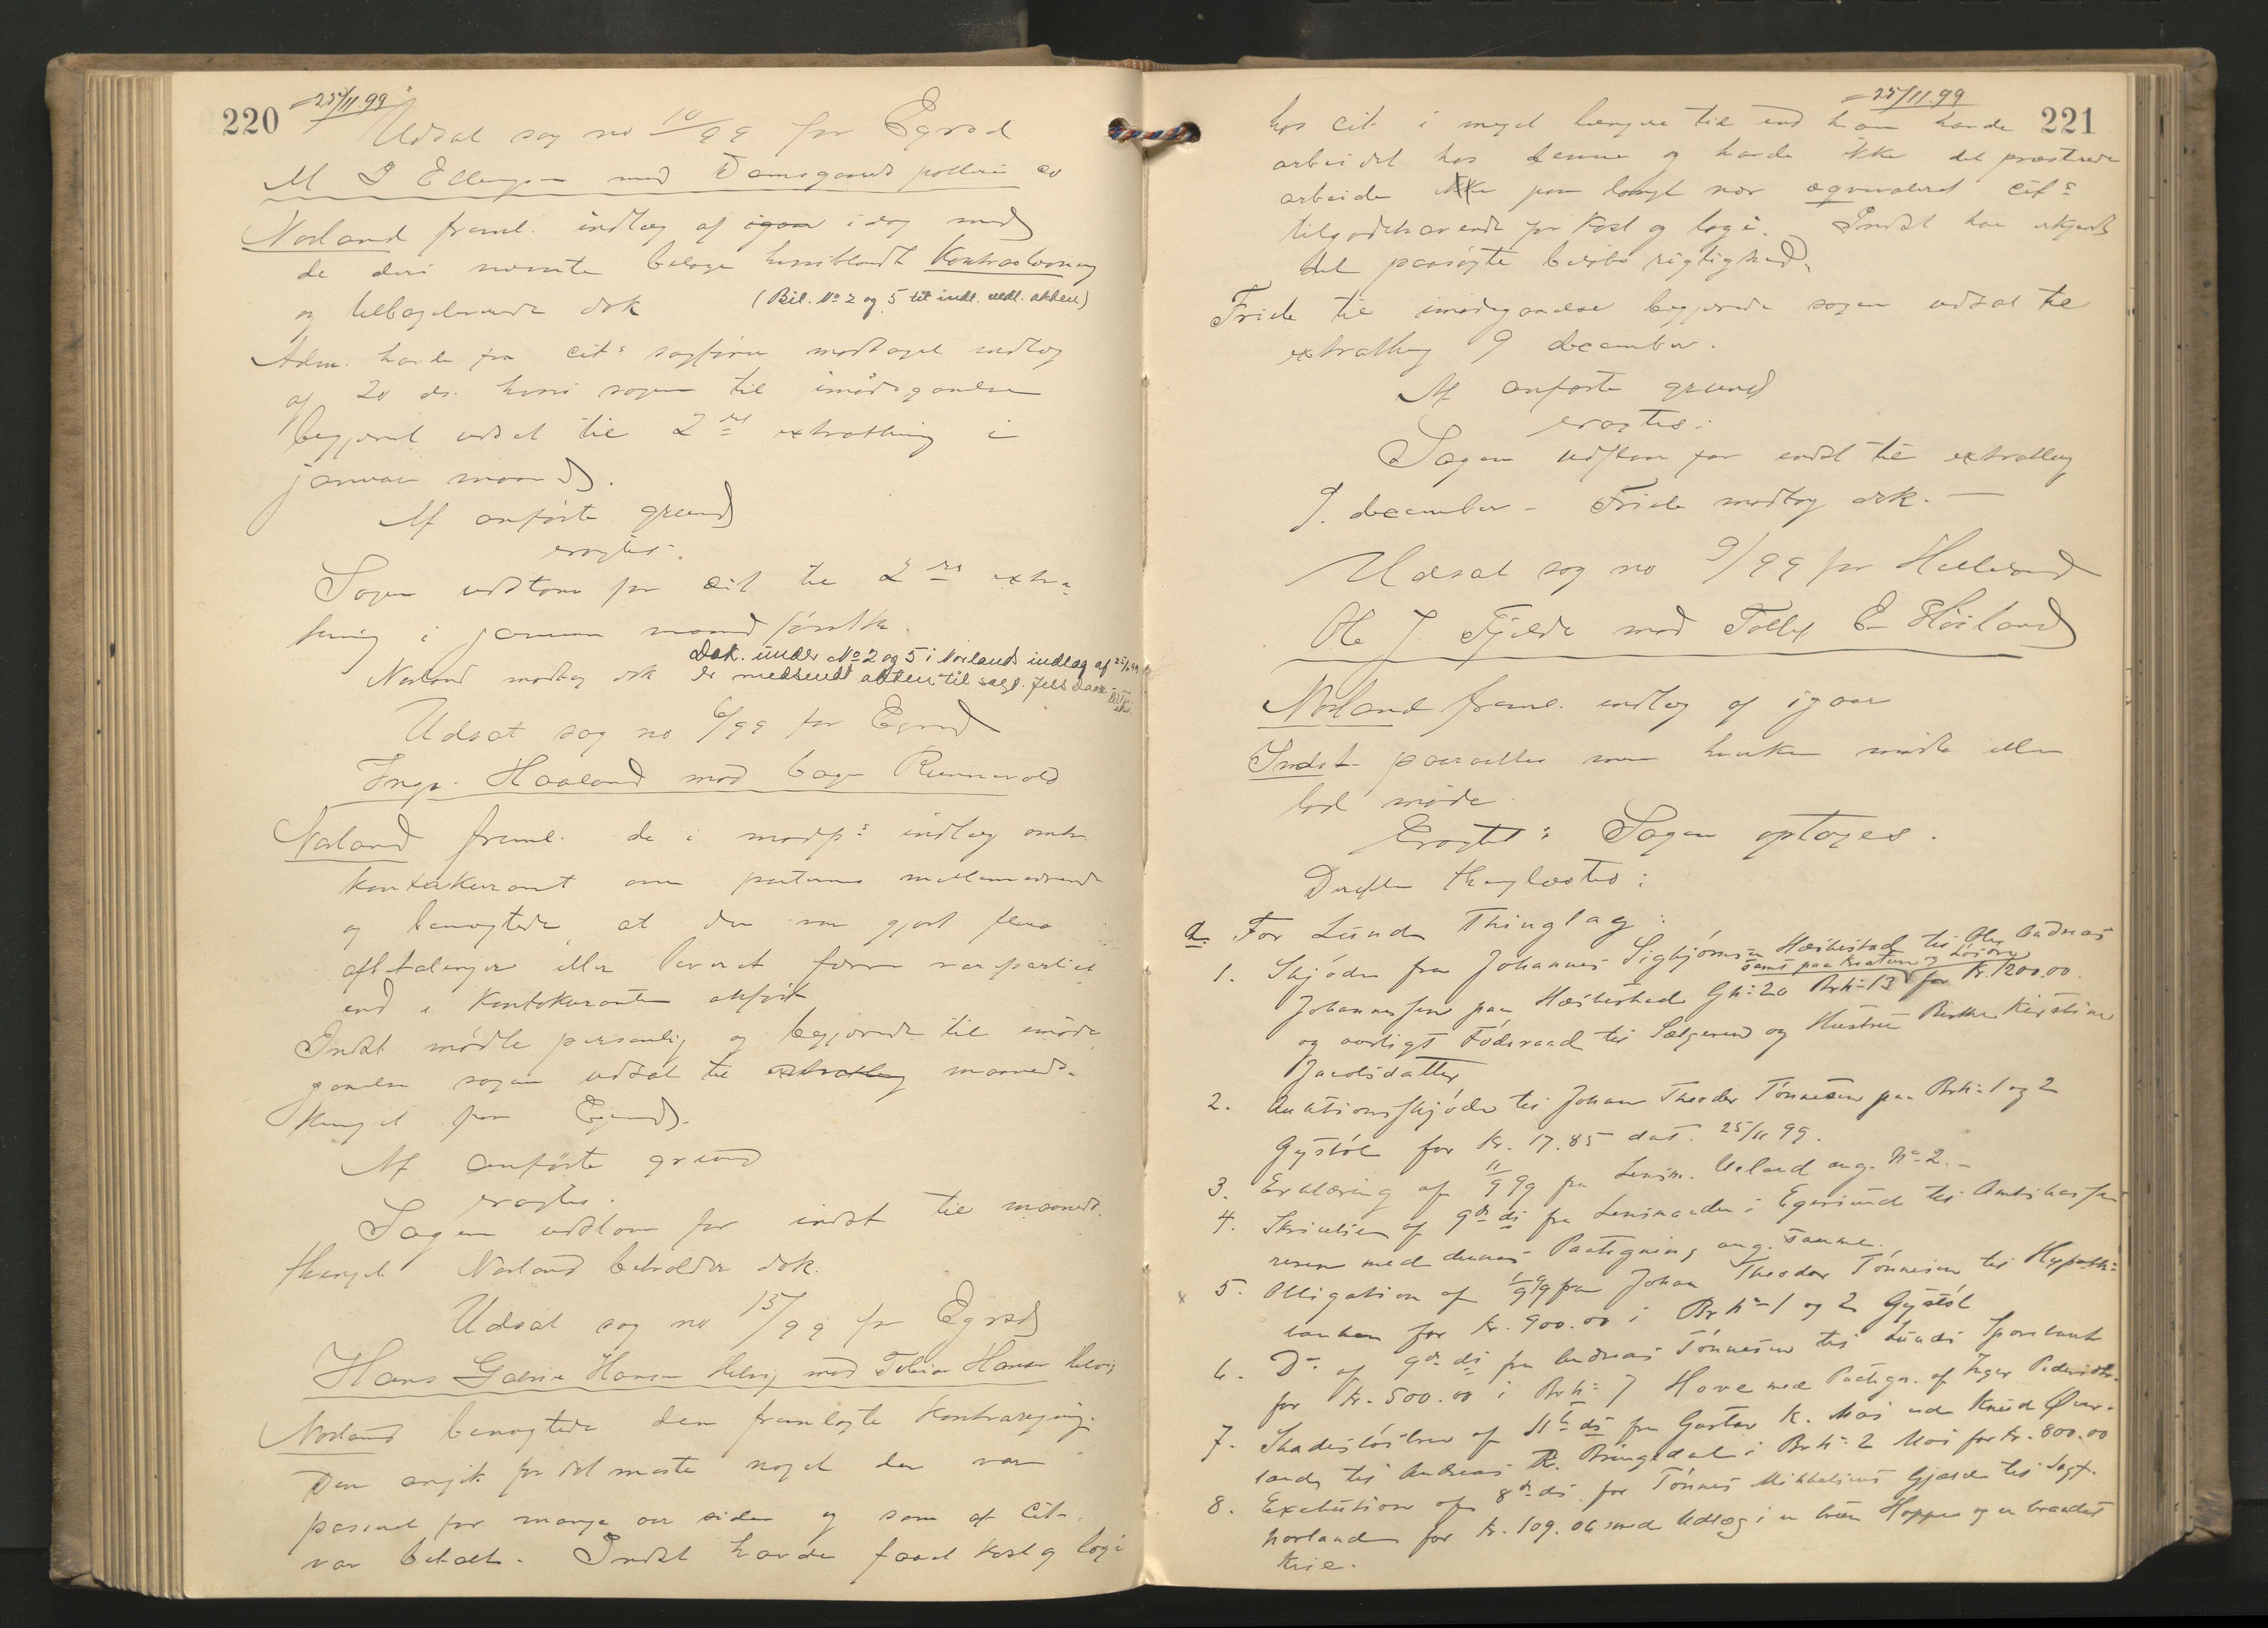 220
25/11 99
Udsat sag no 10/99 for Egrsd
M J Ellingsen mod Damsgaards potteri
Norland freml. indlæg af igaar idag med
de deri nævnte bilage hvoriblandt Kontraregning
og tilbageleverede dok (Bil. No 2 og 5 til indl. vedl. akten)
Adm. havde fra cits sagfører modtaget indlæg
af 20 ds. hvori sagen til imødegaaelse
begjæret udsat til 2det extrathing i
januar maaned.
Af anførte grund
eragtes:
Sagen udstaar for cit til 2det extra-
thing i januar maaned førstk.
Dok. under No 2 og 5 i Norlands indlæg af 25/11 99
Norland modtog dok er medsendt akten til sagf.
Udsat sag no 6/99 for Egrsd
Ingv. Haaland mod Runnevold
Norland freml. de i modps indlæg omh.
kontokurant om parternes mellemværende
og benægtede, at der var gjort flere
afbetalinger eller leveret flere varepartier
end i Kontokuranten anført
Indst mødte personlig og begjærede til imøde-
gaaelse sagen udsat til extrathing maaneds-
thinget for Egersund.
Af anførte grund
eragtes:
Sagen udstaar for indst til maaneds-
thinget Norland beholder dok.
Udsat sag no 15/99 for Egrsd
Hans Gabriel Hansen Helvig mod Tobias Hansen Helvig
Norland benægtede den fremlagte kontraregning.
Den angik for det meste noget der var
passeret for mange aar siden og som af cit.
var betalt. Indst havde faaet kost og logi
25/11 99
221
hos cit i meget længere tid end han havde
arbeidet hos denne og havde ikke det præsterede
arbeide ikke paa langt nær æqvivaleret cits
tilgodehavende for kost og logi. Indst har erkjendt
det paasøgte beløbs rigtighed.
Friele til imødegaaelse begjærede sagen udsat til
extrathing 9 december.
Af anførte grund
eragtes:
Sagen udstaar for indst til extrathing
9. december – Friele modtog dok. –
Udsat sag no 9/99 for Helleland
Ole J. Fjelde mod Tollef E Høiland
Norland freml. indlæg af igaar
Indst. paaraabtes men hverken mødte eller
lod møde.
Eragtet: Sagen optages.
Derefter thinglæstes:
a. For Lunds Thinglag:
1. Skjøde fra Johannes Sigbjørnsen Hæskestad til Ole Andreas
samt paa Kreature og Løsøre
Johannesen paa Hæskestad Gno 20 Brno 13 for Kr. 1200.00
og aarligt Føderaad til Sælgeren og Hustru Berthe Kirstine
Jacobsdatter
2. Auktionsskjøde til Johan Theodor Tønnesen paa Brno 1 og 2
Gystøl for Kr. 17.85 dat. 25/11 99.
3. Erklæring af 11/9 99 fra Lensm. Ueland ang. No 2. –
4. Skrivelse af 9de ds fra Lensmanden i Egersund til Amtskasse-
reren med dennes Paategning ang. samme.
5. Obligation af 1/9 99 fra Johan Theodor Tønnesen til Hypothek-
banken for Kr. 900.00 i Brno 1 og 2 Gystøl
6. Do af 9de ds fra Andreas Tønnesen til Lunds Sparebank
for Kr. 500.00 i Brno 7 Hove med Paategn. af Inger Pedersdtr.
7. Skadesløsbrev af 11te ds fra Gustav K. Moi ved Knud Øver-
land til Andreas R. Bringedal i Brno 2 Moi for Kr. 800.00
8. Exekution af 8de ds. for Tønnes Mikkelsens Gjæld til Sagf.
Norland for Kr. 109.06 med Udlæg i en brun Hoppe og en brandet
Kvie.